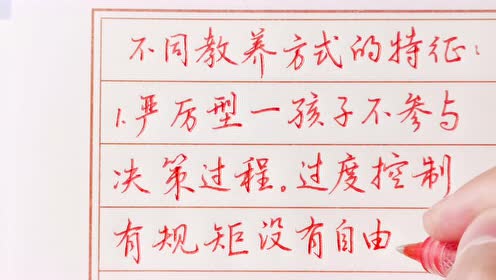 不同教养方式的特征：
1.严厉型一孩子不参与
决策过程。过度控制
有规矩没有自由